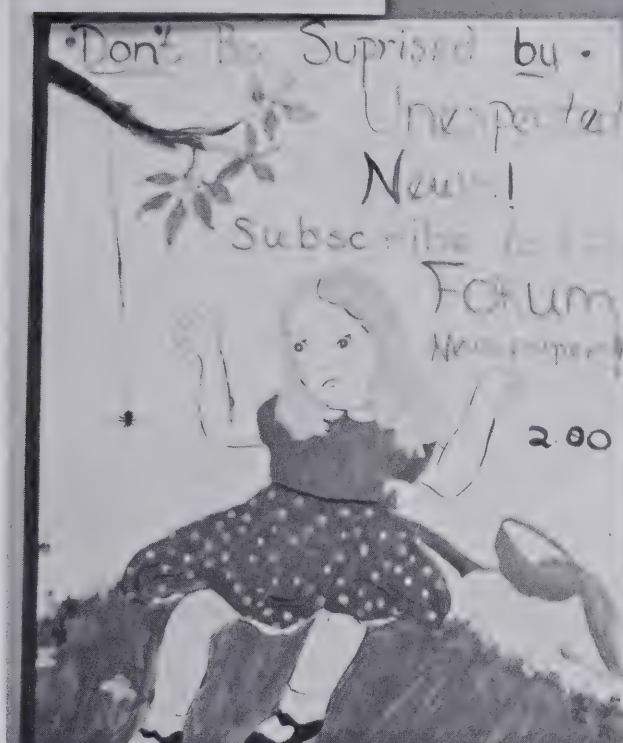 Don't Be Suprised by
Unexpected
News!
Subscribe to the
Forum
Newspaper
2.00